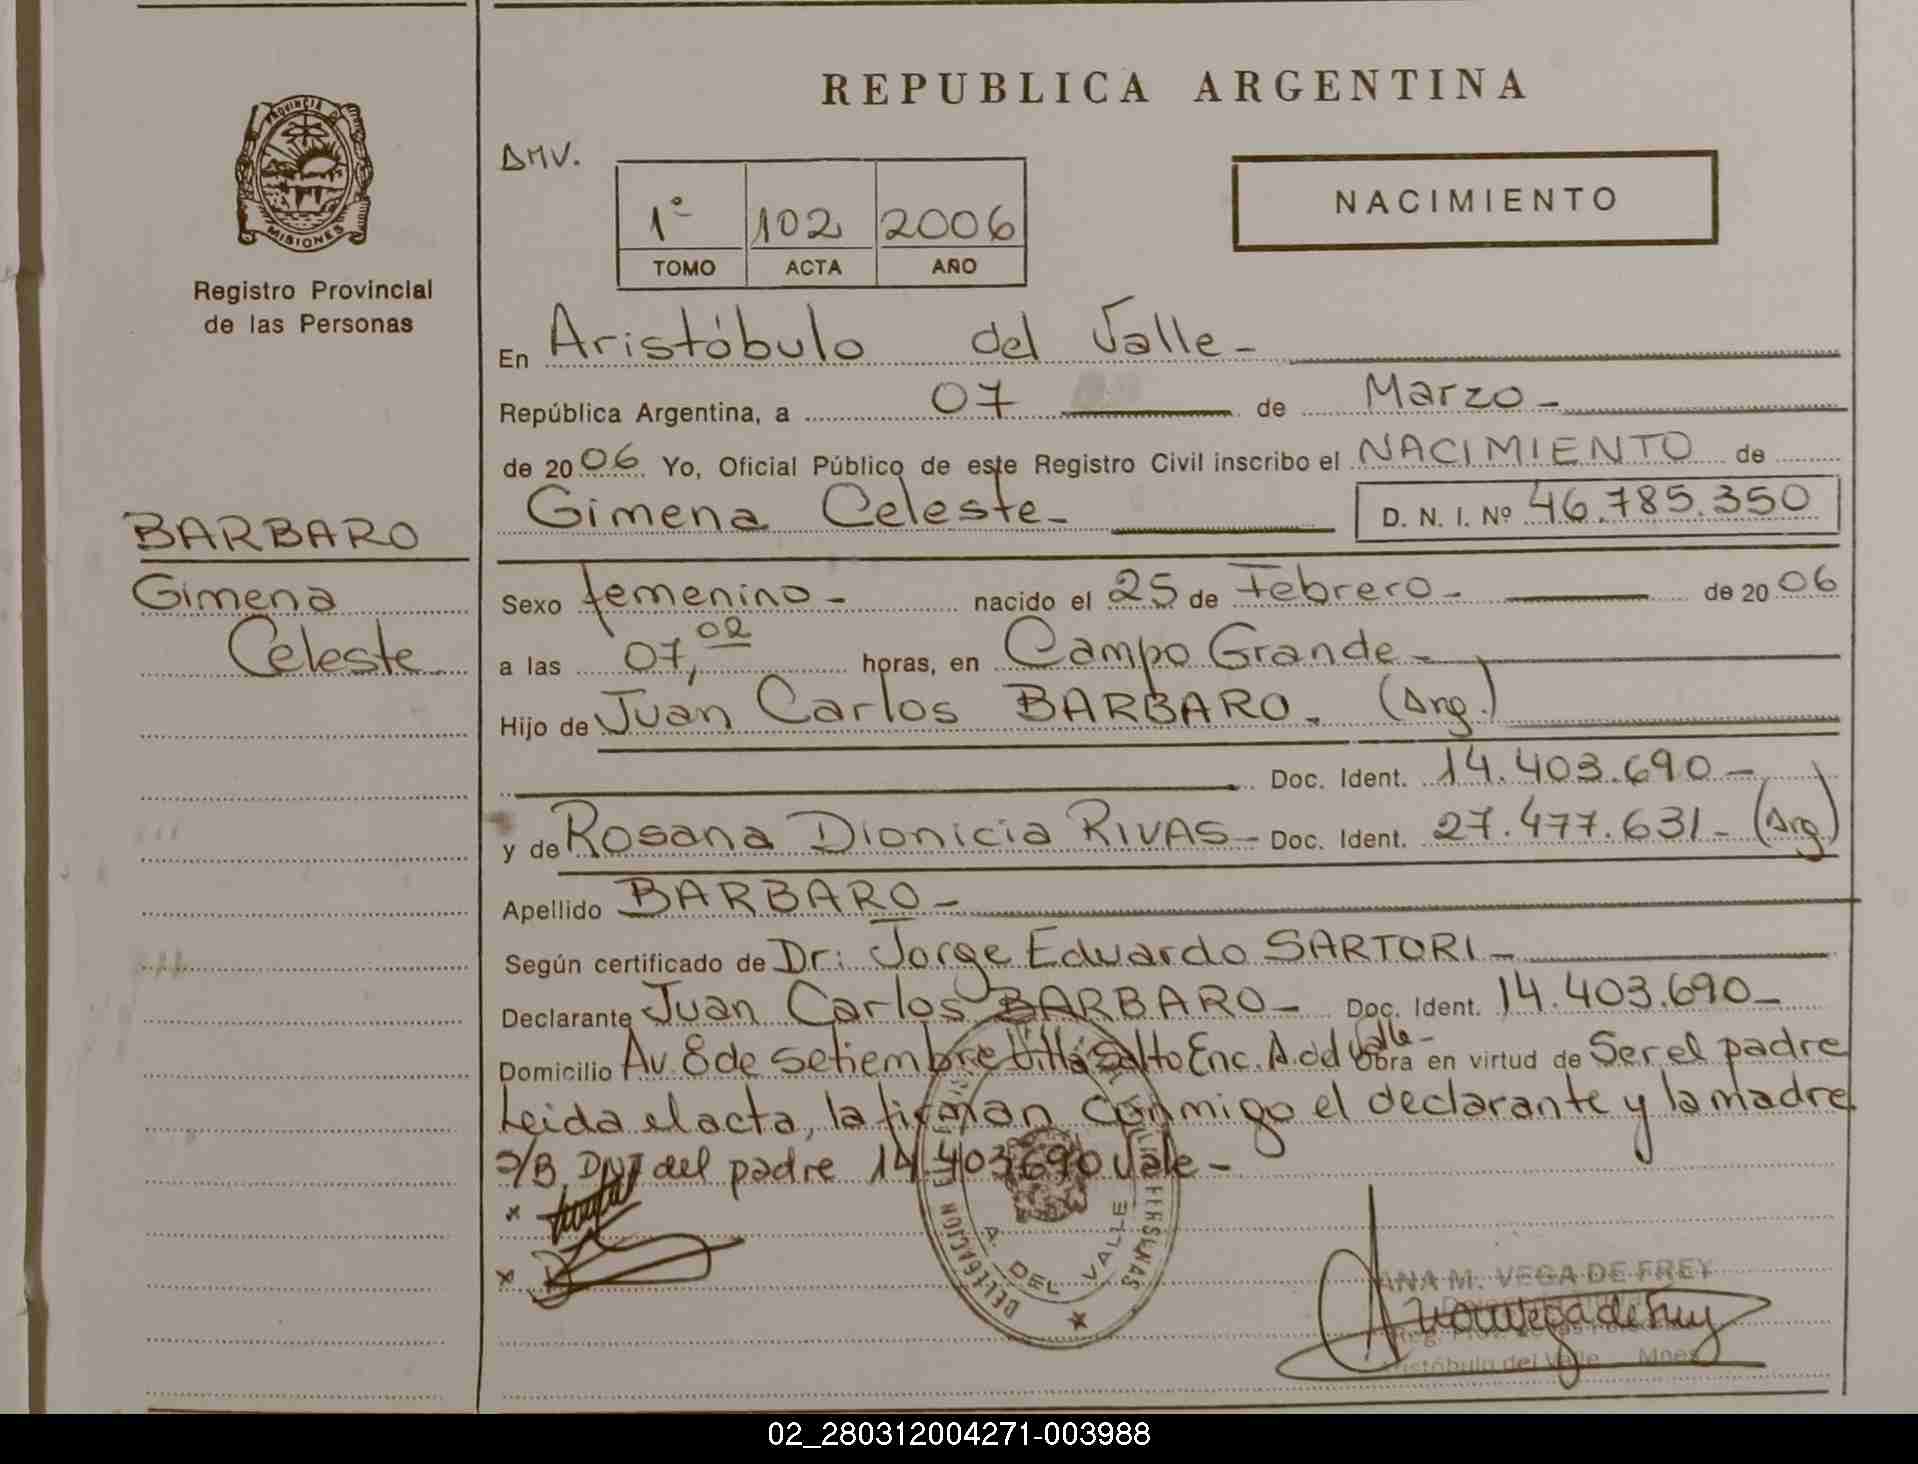 REPUBLICA ARGENTINA
PROVINCIA DE
MISIONES
Registro Provincial
de las Personas
BARBARO
Gimena
Celeste
DMV.
1º 102 2006
TOMO ACTA AÑO
NACIMIENTO
En Aristóbulo del Valle -
República Argentina, a 07 de Marzo -
de 20 06 Yo, Oficial Público de este Registro Civil inscribo el NACIMIENTO de
Gimena Celeste - D. N. I. Nº 46.785.350
Sexo femenino - nacido el 25 de Febrero - de 20 06
a las 07,02 horas, en Campo Grande -
Hijo de Juan Carlos BARBARO. (Arg.)
Doc. Ident. 14.403.690 -
y de Rosana Dionicia RIVAS - Doc. Ident. 27.477.631 - (Arg.)
Apellido BARBARO -
Según certificado de Dr: Jorge Eduardo SARTORI -
Declarante Juan Carlos BARBARO - Doc. Ident. 14.403.690 -
Domicilio Av. 8 de setiembre Villa Salto Enc. A. del Valle - Obra en virtud de Ser el padre
Leida el acta, la firman conmigo el declarante y la madre
S/B. DNI del padre 14.403.690 Vale -
x
x
DELEGACION PERSONAS
A. DEL VALLE
ANA M. VEGA DE FREY
Aristóbulo del Valle Mnes
02_280312004271-003988